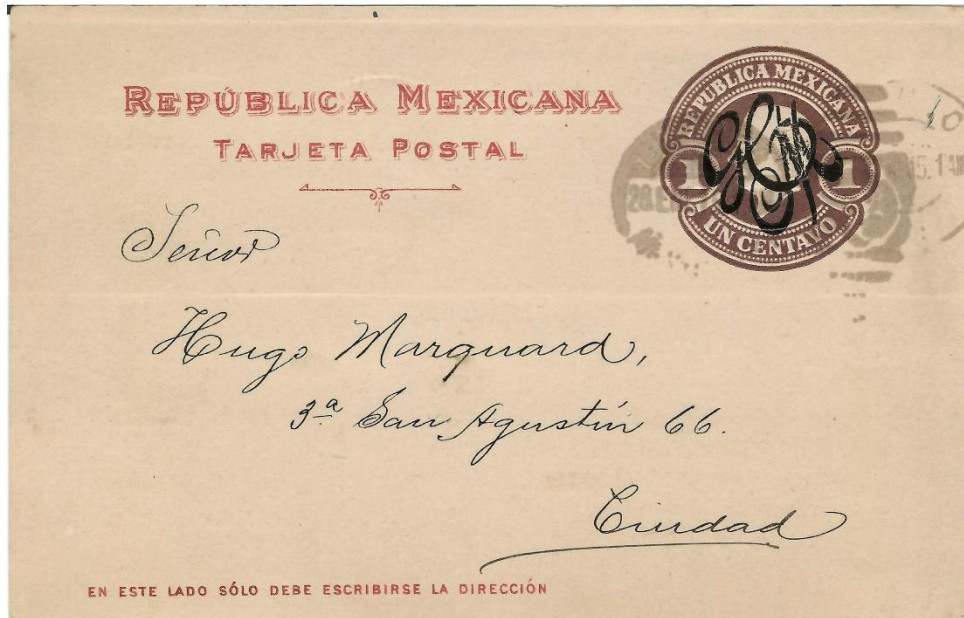 REPÚBLICA MEXICANA
TARJETA POSTAL
REPUBLICA MEXICANA
1 1
UN CENTAVO
Señor
Hugo Marquard,
3ª San Agustín 66.
Ciudad
EN ESTE LADO SÓLO DEBE ESCRIBIRSE LA DIRECCIÓN